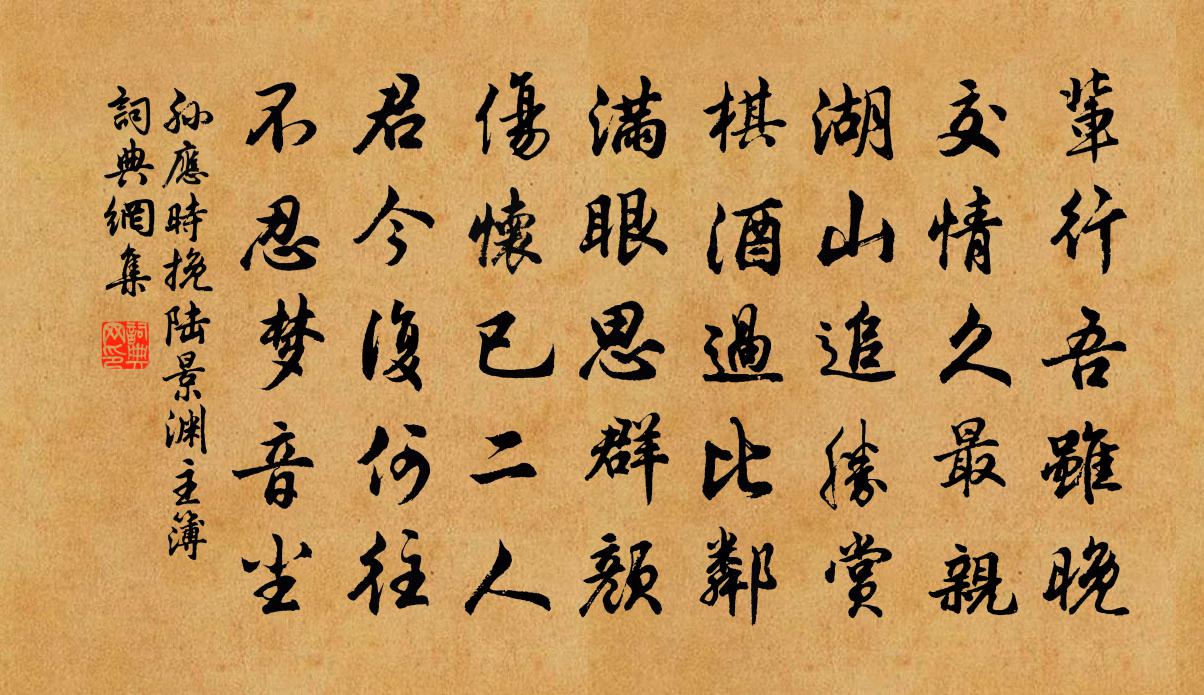 輩行吾雖晚
交情久最親
湖山追勝賞
棋酒過比鄰
滿眼思群顏
傷懷已二人
君今復何往
不忍梦音尘
孫應時挽陆景渊主簿
詞典網集
詞典网印